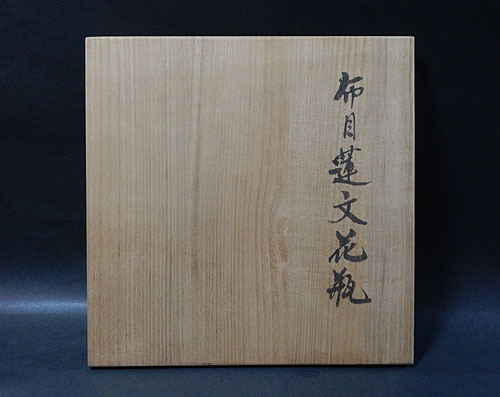 布目蓮文花瓶